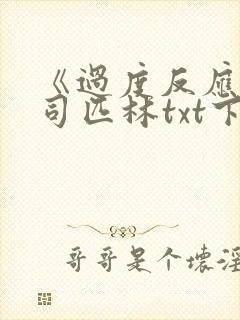 《過度反應
司匹林txt下
哥哥是个壞淫